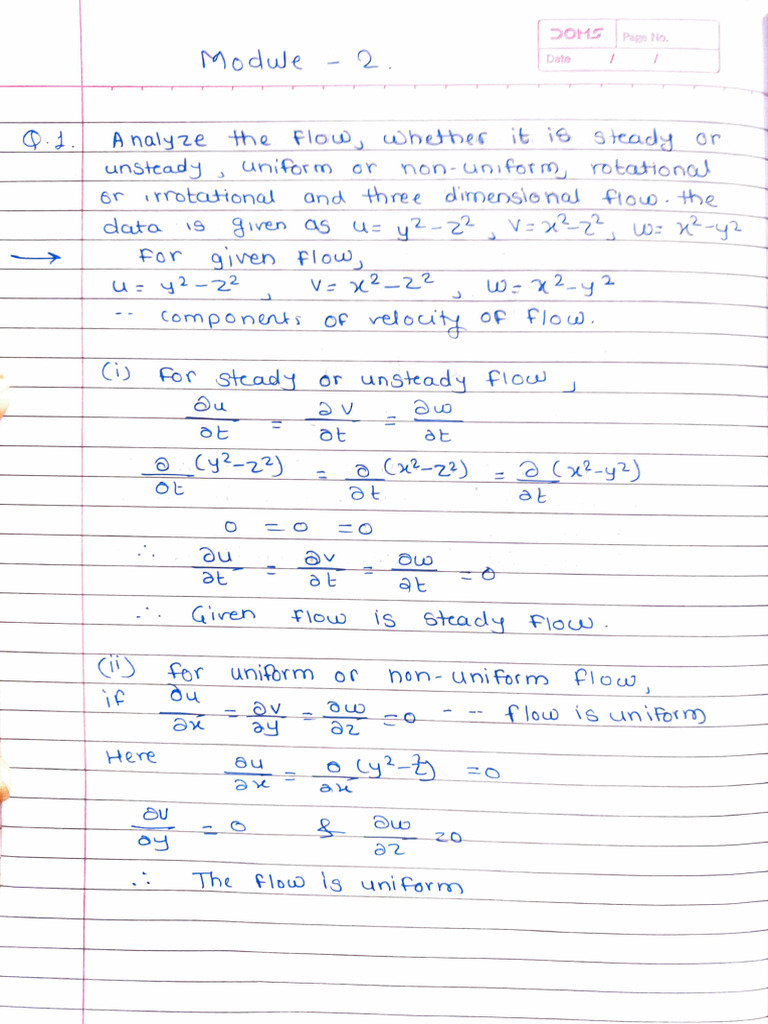 DOMS Page No.
Date / /
Module - 2.
Q.1. Analyze the flow, whether it is steady or
unsteady, uniform or non-uniform, rotational
or irrotational and three dimensional flow. the
data is given as u= y²-z², v=x²-z², w= x²-y²
→ For given flow,
u= y²-z² , v= x²-z² , w=x²-y²
-- components of velocity of flow.
(i) For steady or unsteady flow,
∂u/∂t = ∂v/∂t = ∂w/∂t
∂/∂t (y²-z²) = ∂/∂t (x²-z²) = ∂/∂t (x²-y²)
0 = 0 = 0
∴ ∂u/∂t = ∂v/∂t = ∂w/∂t = 0
∴ Given flow is steady flow.
(ii) for uniform or non-uniform flow,
if ∂u/∂x = ∂v/∂y = ∂w/∂z = 0 -- -- flow is uniform
Here ∂u/∂x = ∂/∂x (y²-z²) = 0
∂v/∂y = 0 & ∂w/∂z = 0
∴ The flow is uniform